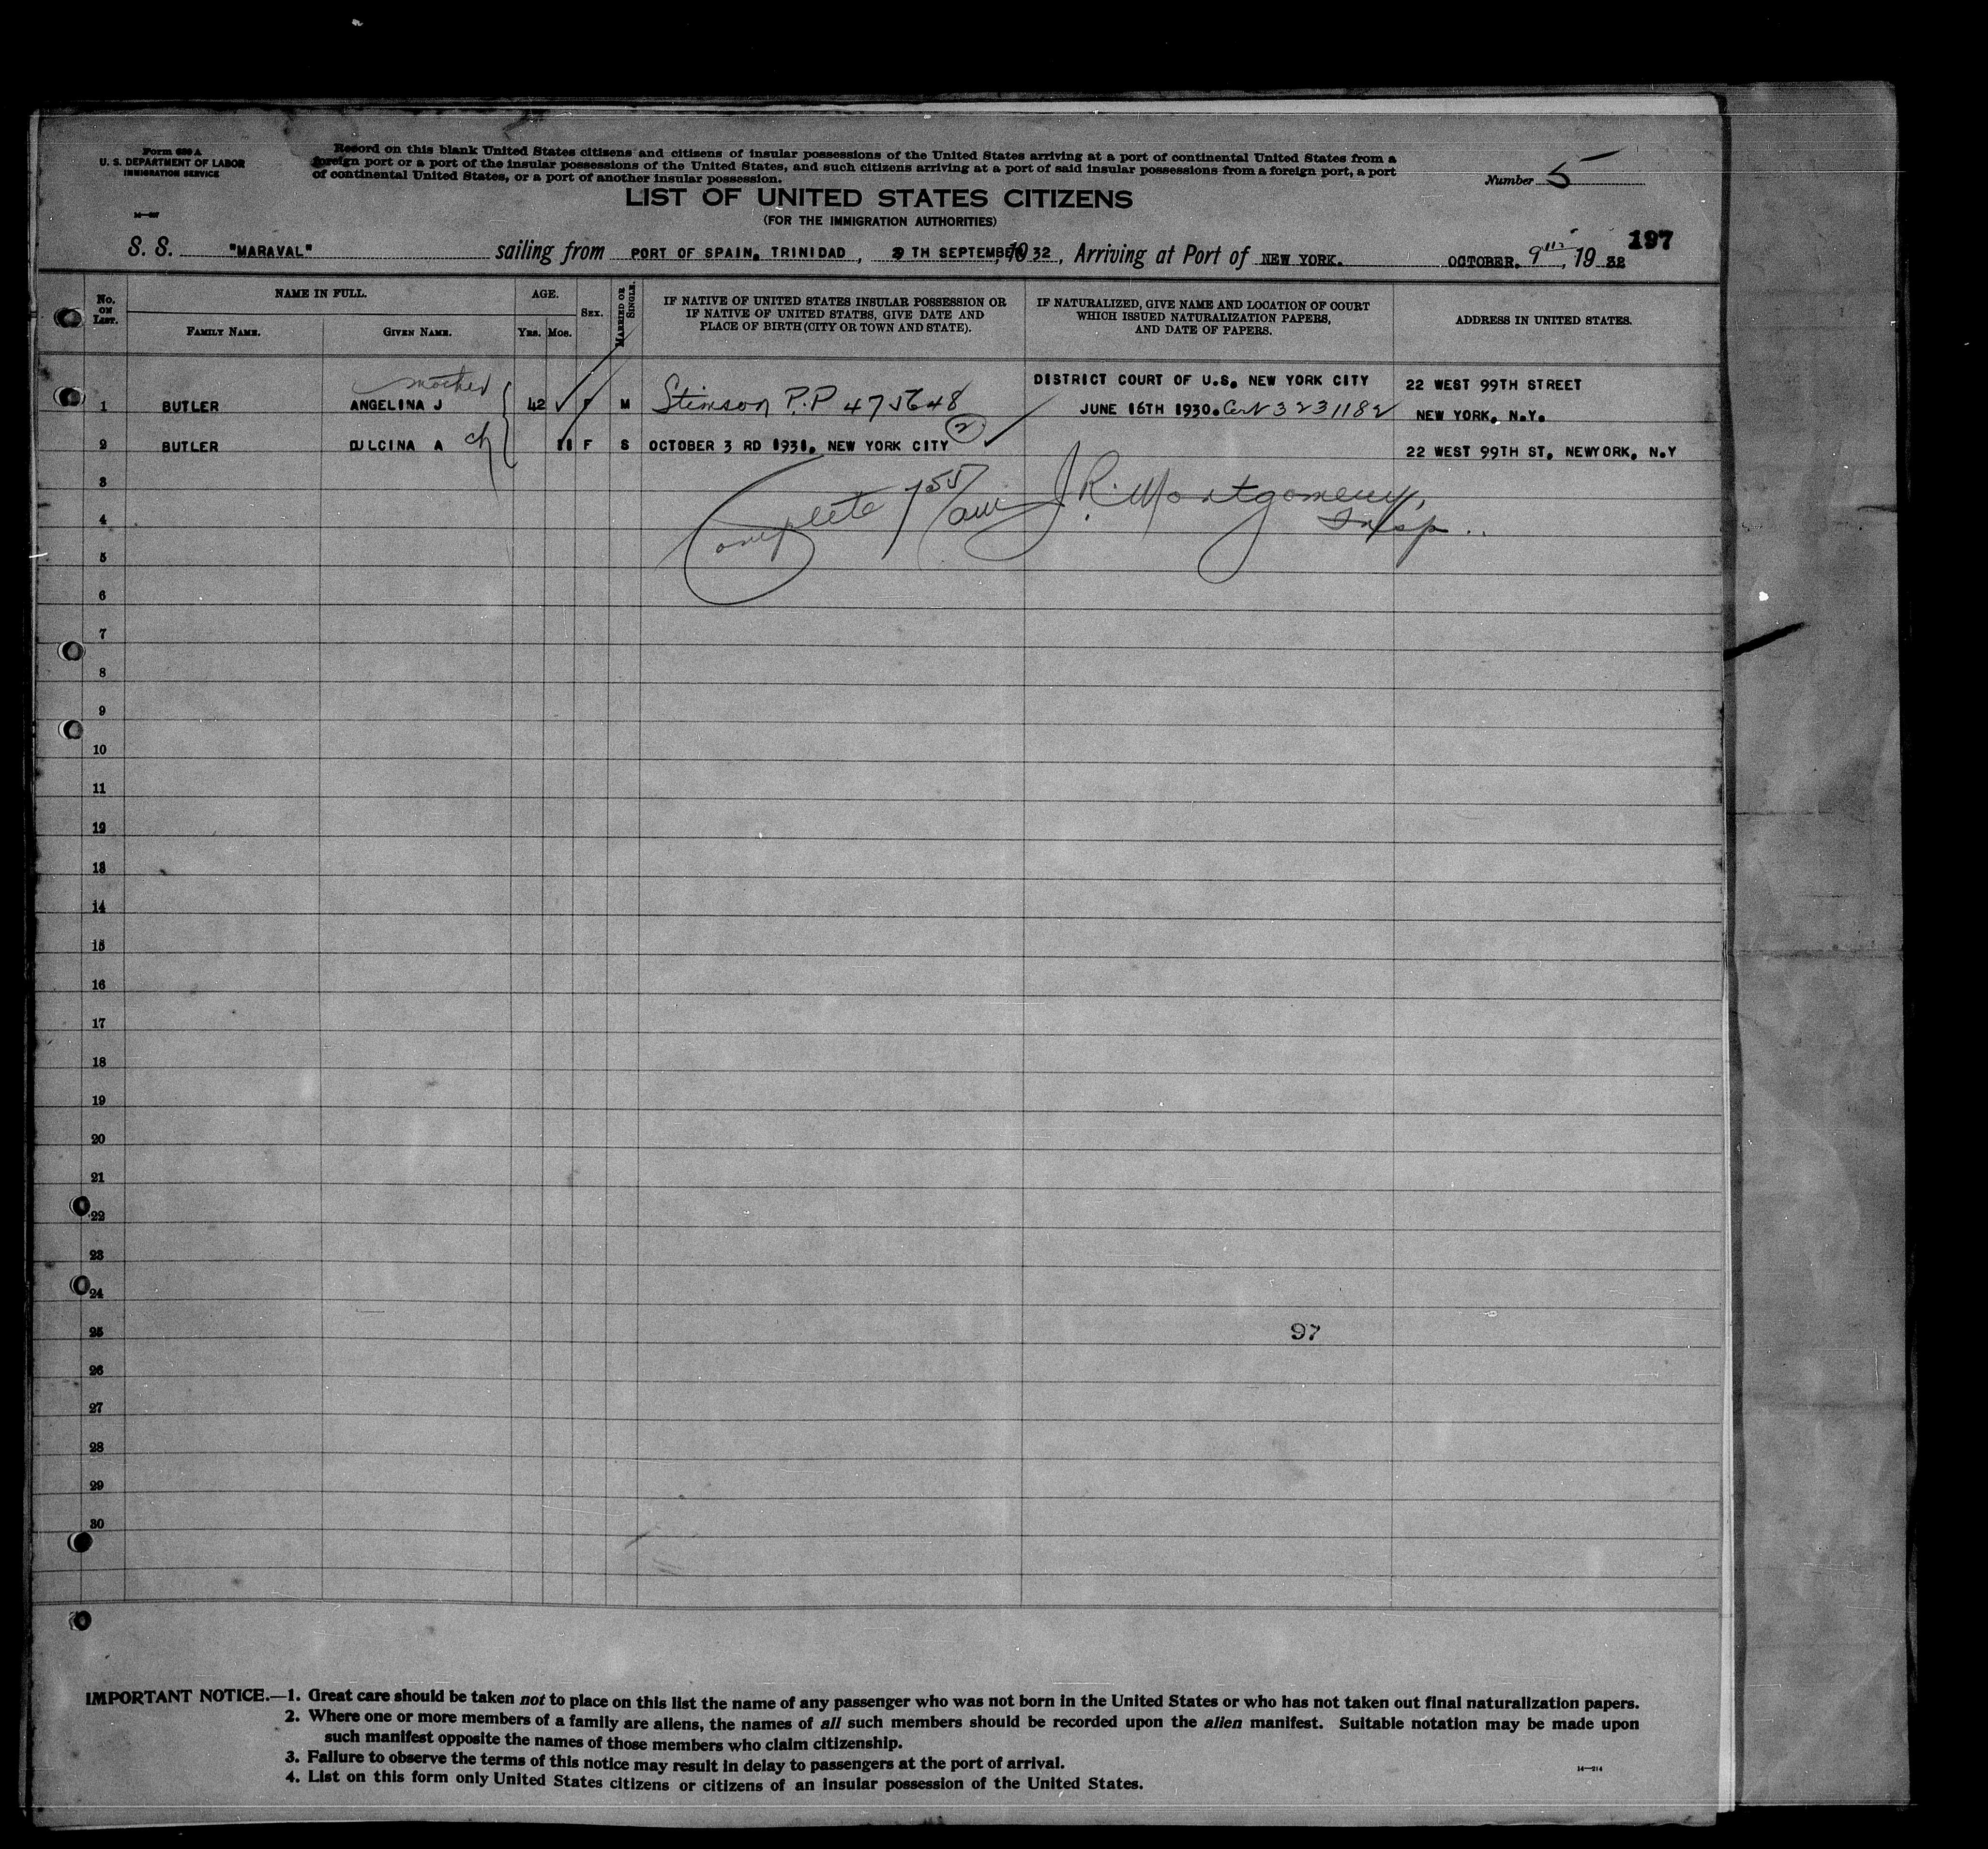 Form 630 A
U. S. DEPARTMENT OF LABOR
IMMIGRATION SERVICE
Record on this blank United States citizens and citizens of insular possessions of the United States arriving at a port of continental United States from a
foreign port or a port of the insular possessions of the United States, and such citizens arriving at a port of said insular possessions from a foreign port, a port
of continental United States, or a port of another insular possession.
Number 5
LIST OF UNITED STATES CITIZENS
(FOR THE IMMIGRATION AUTHORITIES)
197
S. S. "MARAVAL" sailing from PORT OF SPAIN, TRINIDAD, TH SEPTEMBER 1932, Arriving at Port of NEW YORK. OCTOBER. 9th, 19 32
No. ON LIST.
NAME IN FULL.
FAMILY NAME.
GIVEN NAME.
AGE.
YRS. MOS.
SEX.
MARRIED OR SINGLE.
IF NATIVE OF UNITED STATES INSULAR POSSESSION OR
IF NATIVE OF UNITED STATES, GIVE DATE AND
PLACE OF BIRTH (CITY OR TOWN AND STATE).
IF NATURALIZED, GIVE NAME AND LOCATION OF COURT
WHICH ISSUED NATURALIZATION PAPERS,
AND DATE OF PAPERS.
ADDRESS IN UNITED STATES.
mother
DISTRICT COURT OF U.S. NEW YORK CITY 22 WEST 99TH STREET
1 BUTLER ANGELINA J 42 F M Stimson P.P 475648 JUNE 16TH 1930. Cert 3231182 NEW YORK, N.Y.
2 BUTLER DULCINA A ch 11 F S OCTOBER 3 RD 1931. NEW YORK CITY 2 22 WEST 99TH ST, NEWYORK, N.Y
3
4
Complete J R. Montgomery,
Insp..
5
6
7
8
9
10
11
12
13
14
15
16
17
18
19
20
21
22
23
24
25
97
26
27
28
29
30
IMPORTANT NOTICE.—1. Great care should be taken not to place on this list the name of any passenger who was not born in the United States or who has not taken out final naturalization papers.
2. Where one or more members of a family are aliens, the names of all such members should be recorded upon the alien manifest. Suitable notation may be made upon
such manifest opposite the names of those members who claim citizenship.
3. Failure to observe the terms of this notice may result in delay to passengers at the port of arrival.
4. List on this form only United States citizens or citizens of an insular possession of the United States.
14—214